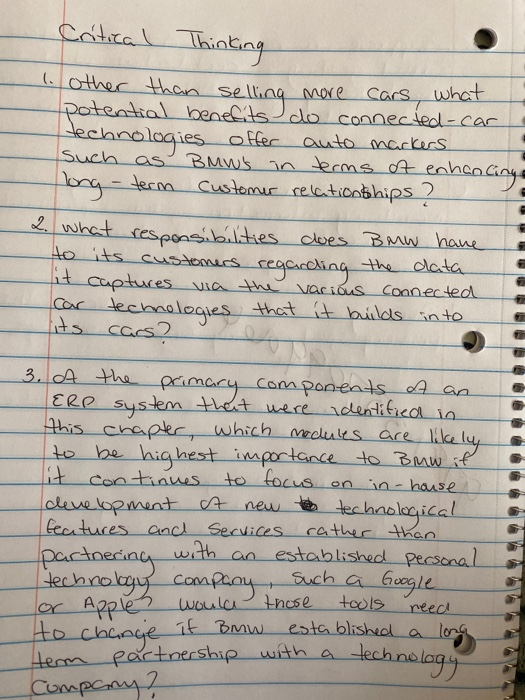 Critical Thinking
1. Other than selling more cars, what
potential benefits do connected-car
technologies offer auto markers
such as BMWs in terms of enhancing
long-term customer relationships?
2. What responsibilities does BMW have
to its customers regarding the data
it captures via the various connected
car technologies that it builds into
its cars?
3. Of the primary components of an
ERP system that were identified in
this chapter, which modules are likely
to be highest importance to BMW if
it continues to focus on in-house
development of new technological
features and services rather than
partnering with an established personal
technology company, such a Google
or Apple? Would those tools need
to change if BMW established a long
term partnership with a technology
company?